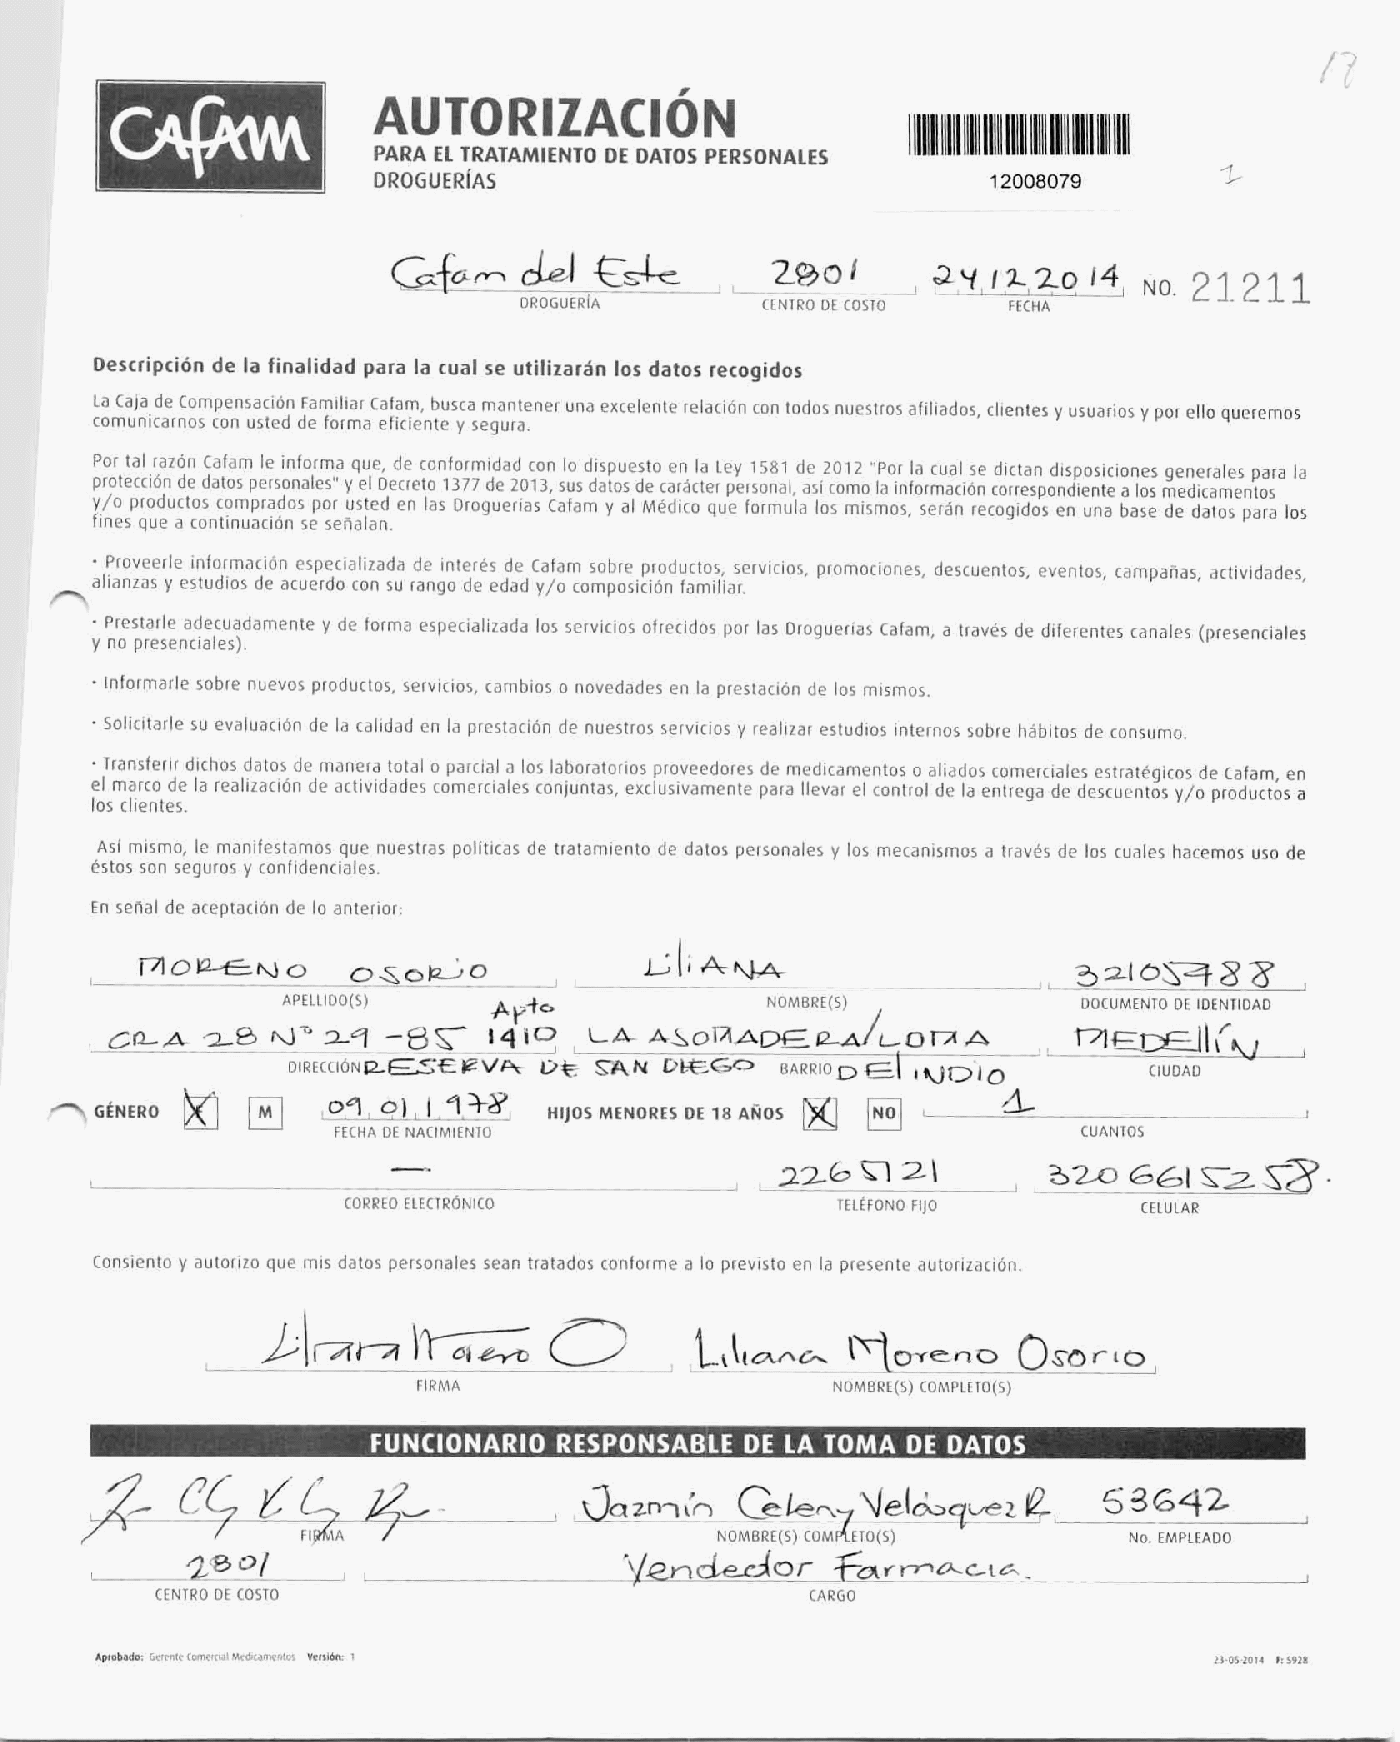 17
CAFAM
AUTORIZACIÓN
PARA EL TRATAMIENTO DE DATOS PERSONALES
DROGUERÍAS
12008079
1
Cafam del Este 2801 24 12 2014 NO. 21211
DROGUERÍA CENTRO DE COSTO FECHA
Descripción de la finalidad para la cual se utilizarán los datos recogidos
La Caja de Compensación Familiar Cafam, busca mantener una excelente relación con todos nuestros afiliados, clientes y usuarios y por ello queremos
comunicarnos con usted de forma eficiente y segura.
Por tal razón Cafam le informa que, de conformidad con lo dispuesto en la Ley 1581 de 2012 "Por la cual se dictan disposiciones generales para la
protección de datos personales" y el Decreto 1377 de 2013, sus datos de carácter personal, así como la información correspondiente a los medicamentos
y/o productos comprados por usted en las Droguerías Cafam y al Médico que formula los mismos, serán recogidos en una base de datos para los
fines que a continuación se señalan.
· Proveerle información especializada de interés de Cafam sobre productos, servicios, promociones, descuentos, eventos, campañas, actividades,
alianzas y estudios de acuerdo con su rango de edad y/o composición familiar.
· Prestarle adecuadamente y de forma especializada los servicios ofrecidos por las Droguerías Cafam, a través de diferentes canales (presenciales
y no presenciales).
· Informarle sobre nuevos productos, servicios, cambios o novedades en la prestación de los mismos.
· Solicitarle su evaluación de la calidad en la prestación de nuestros servicios y realizar estudios internos sobre hábitos de consumo.
· Transferir dichos datos de manera total o parcial a los laboratorios proveedores de medicamentos o aliados comerciales estratégicos de Cafam, en
el marco de la realización de actividades comerciales conjuntas, exclusivamente para llevar el control de la entrega de descuentos y/o productos a
los clientes.
Así mismo, le manifestamos que nuestras políticas de tratamiento de datos personales y los mecanismos a través de los cuales hacemos uso de
éstos son seguros y confidenciales.
En señal de aceptación de lo anterior:
MORENO OSORIO LILIANA 32105788
APELLIDO(S) NOMBRE(S) DOCUMENTO DE IDENTIDAD
Apto
CRA 28 N° 29 - 85 1410 LA ASOMADERA/LOMA MEDEllÍN
DIRECCIÓN RESERVA DE SAN DIEGO BARRIO DEL INDIO CIUDAD
GÉNERO X M 09 01 1978 HIJOS MENORES DE 18 AÑOS X NO 1
FECHA DE NACIMIENTO CUANTOS
— 2265121 3206615258.
CORREO ELECTRÓNICO TELÉFONO FIJO CELULAR
Consiento y autorizo que mis datos personales sean tratados conforme a lo previsto en la presente autorización.
Liliana Moreno O Liliana Moreno Osorio
FIRMA NOMBRE(S) COMPLETO(S)
FUNCIONARIO RESPONSABLE DE LA TOMA DE DATOS
Jazmín Celeny Velásquez R 53642
FIRMA NOMBRE(S) COMPLETO(S) No. EMPLEADO
2801 Vendedor Farmacia.
CENTRO DE COSTO CARGO
Aprobado: Gerente Comercial Medicamentos Versión: 1 23-05-2014 F: 5928